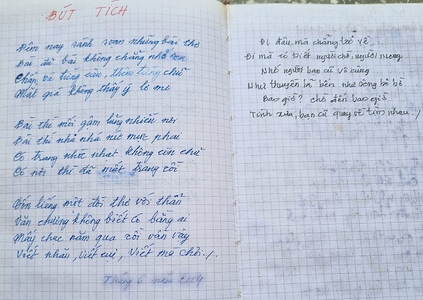 BÚT TÍCH
Đêm nay rảnh soạn những bài thơ
Bài ấy bài không chẳng nhớ
Chán vê từng câu, thêm từng chữ
Mặt giá không thấy ý lơ mơ
Bài thì mối gậm lủng nhiều nơi
Bài thì nhả nhả nét mực phai
Có trang nhức nhạt không còn chữ
Có nơi thì đã mất trang rồi
Bốn tiếng một đời thơ với thẩn
Văn chương không biết có bằng ai
Mấy chục năm qua rồi vẫn vậy
Viết nhầu, viết cùi, viết mà chơi./.
Tháng 6 năm 2009
Đi đâu mà chẳng trở về
Đi mà có biết người chờ, người mong
Nhớ người bạn cũ vô cùng
Như thuyền lìa bến nhớ bờ
Bao giờ? chờ đến bao giờ
Tình xưa, bạn cũ quay về tìm nhau./.